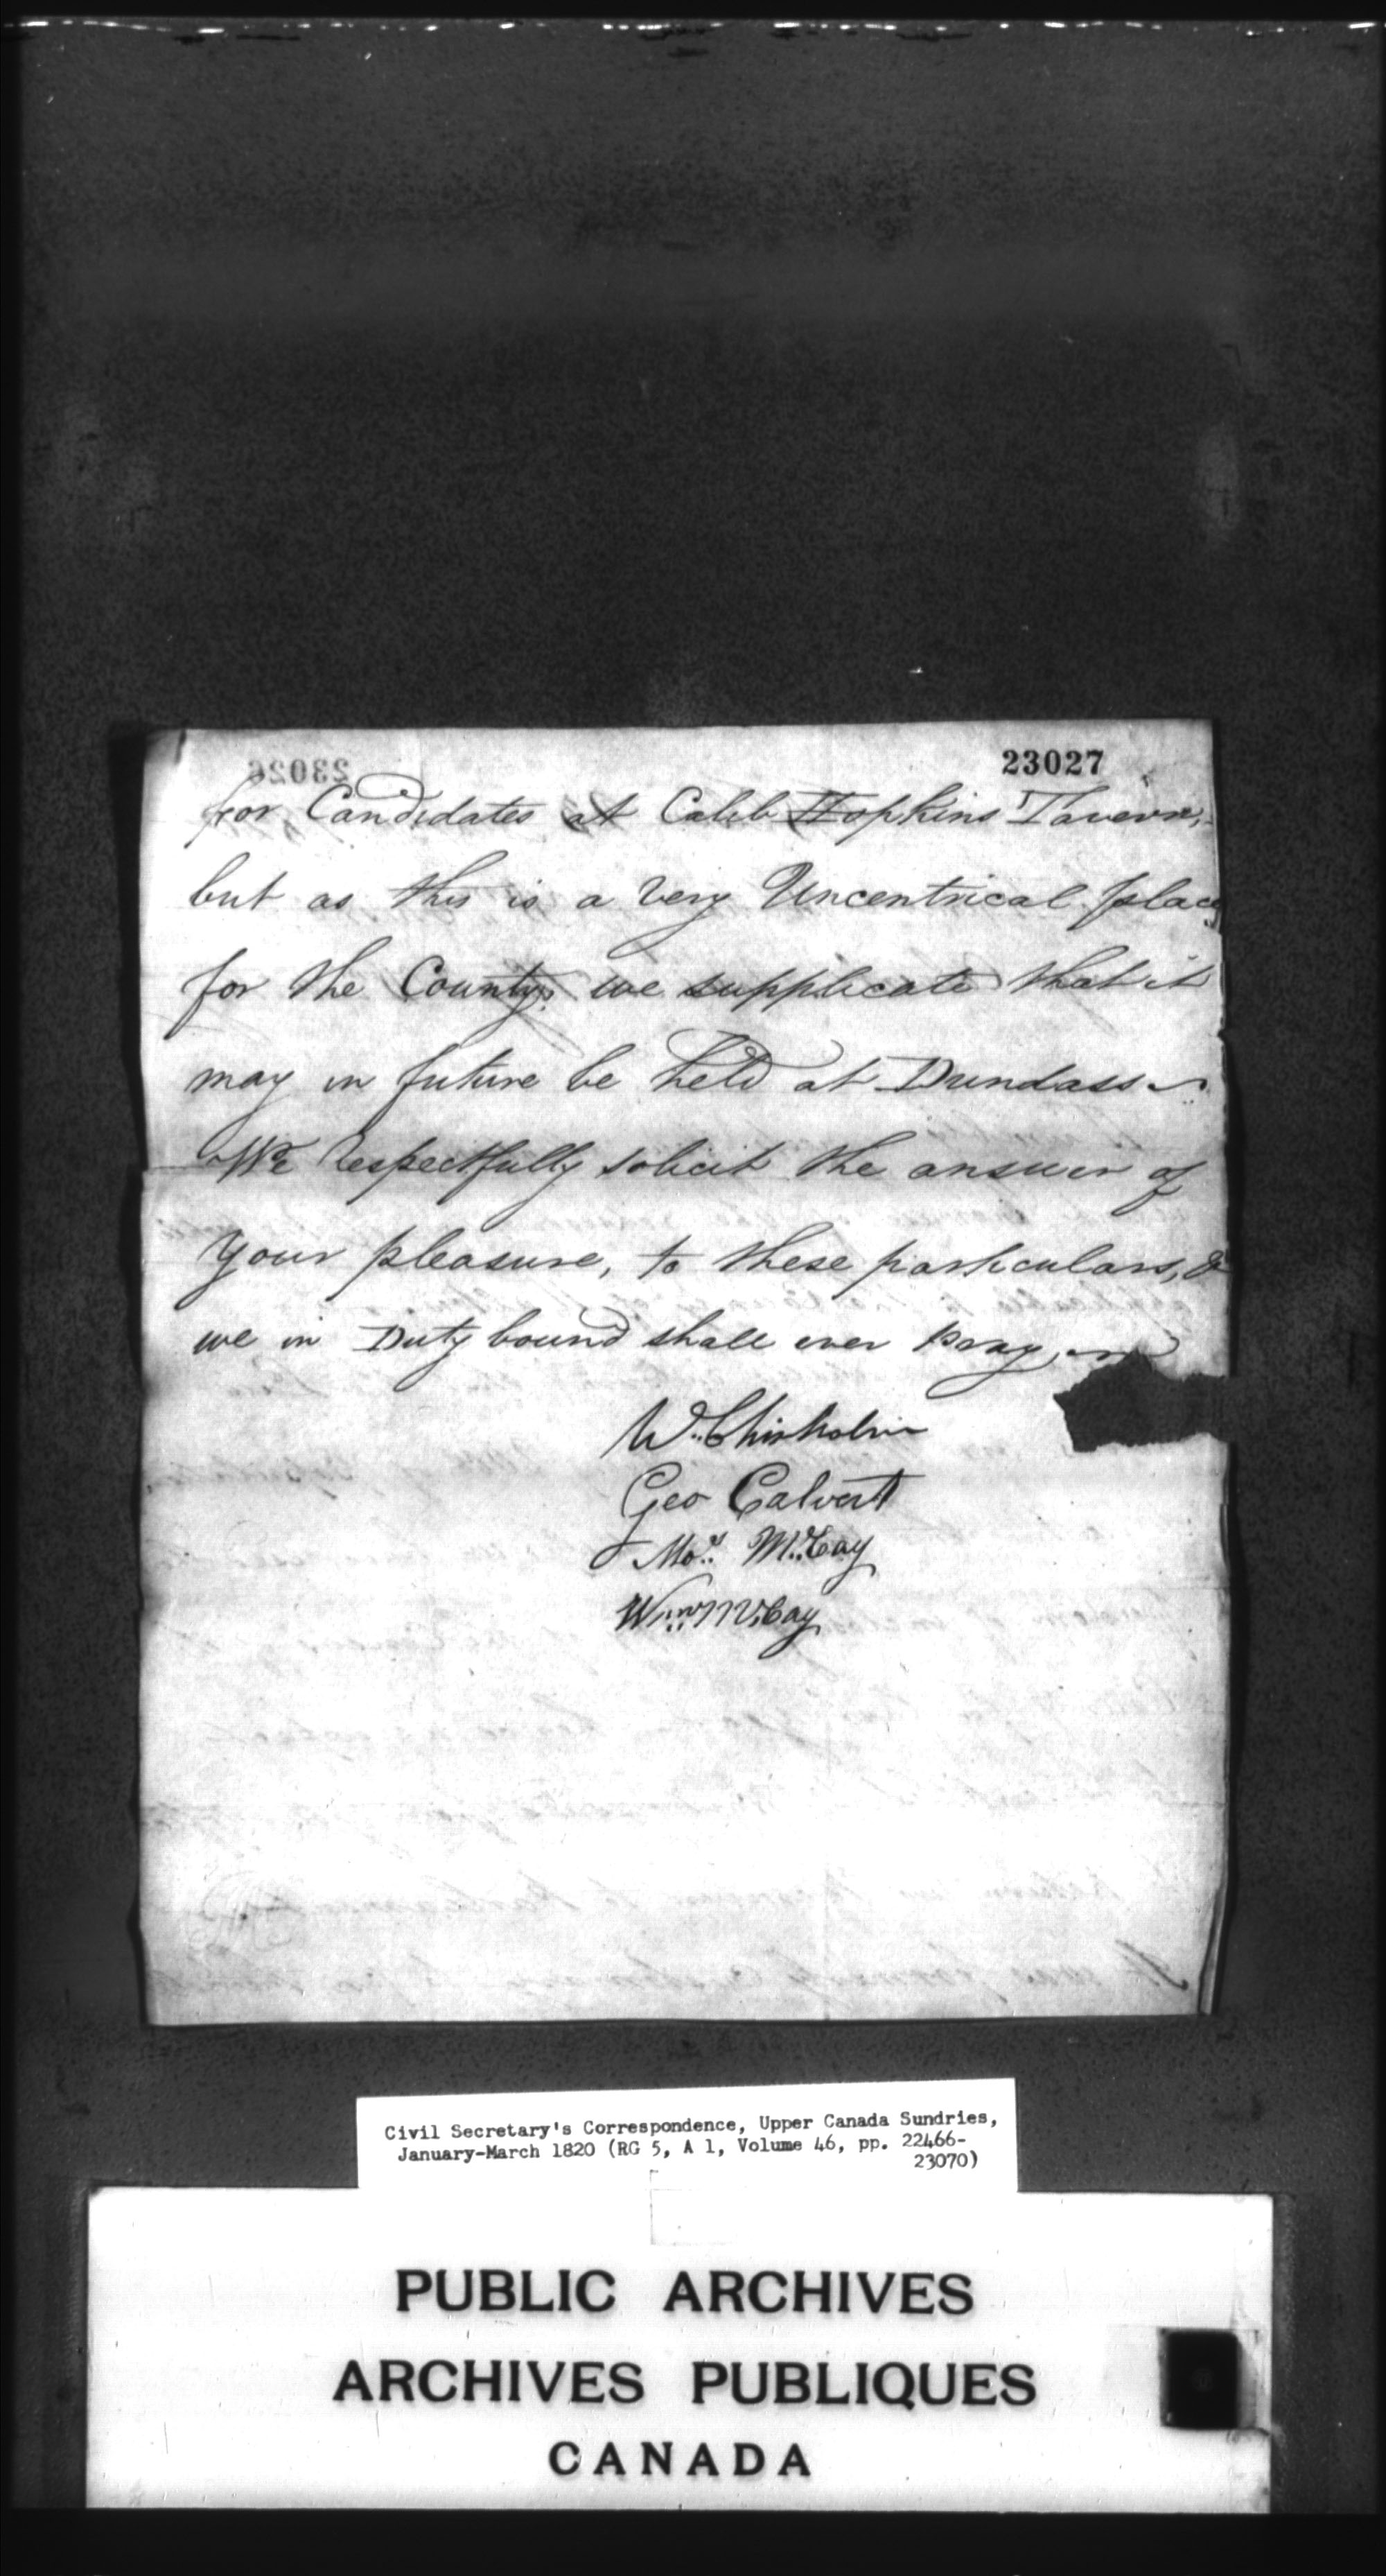 23027
for Candidates at Caleb Hopkins Tavern,
but as this is a very Uncentrical place
for the County, we supplicate that it
may in future be held at Dundass
We respectfully solicit the answer of
your pleasure, to these particulars, &
we in Duty bound shall ever pray
W. Chisholm
Geo Calvert
Mos. McCay
Wm McCay
Civil Secretary's Correspondence, Upper Canada Sundries,
January-March 1820 (RG 5, A 1, Volume 46, pp. 22466-
23070)
PUBLIC ARCHIVES
ARCHIVES PUBLIQUES
CANADA